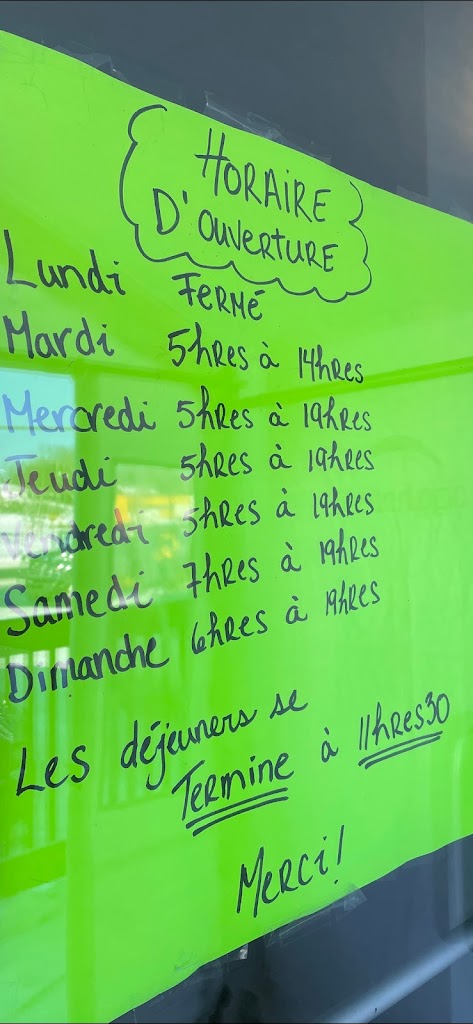 HORAIRE
D'OUVERTURE
Lundi FERMÉ
Mardi 5hRes à 14hRes
Mercredi 5hRes à 19hRes
Jeudi 5hRes à 19hRes
Vendredi 5hRes à 19hRes
Samedi 7hRes à 19hRes
Dimanche 6hRes à 19hRes
Les déjeuners se
Termine à 11hRes30
MERCi!